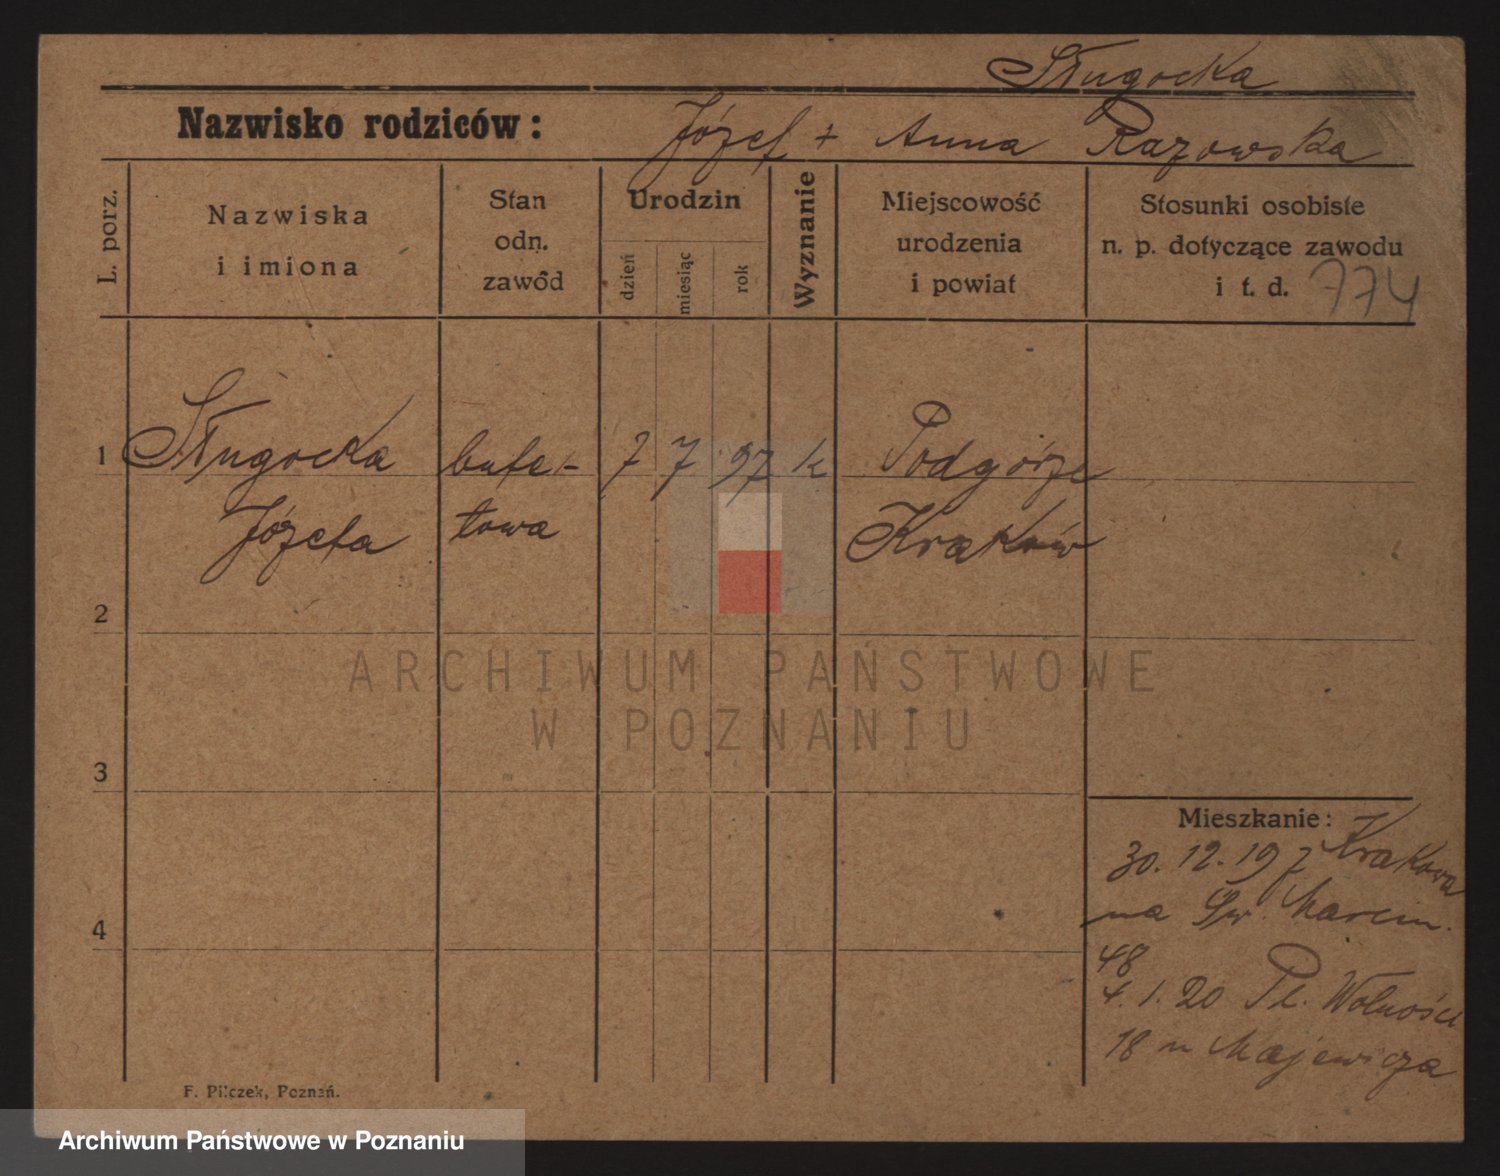 Sługocka
Nazwisko rodziców: Józef + Anna Razowska
L. porz.
Nazwiska
i imiona
Stan
odn.
zawód
Urodzin
dzień
miesiąc
rok
Wyznanie
Miejscowość
urodzenia
i powiat
Stosunki osobiste
n. p. dotyczące zawodu
i t. d. 774
1 Sługocka bufe- 7 7 97 k Podgórze
Józefa towa Kraków
2
3
4
Mieszkanie:
30. 12. 19 z Krakowa
na Św. Marcin.
48
4. 1. 20 Pl. Wolności
18 u Majewicza
F. Pilczek, Poznań.
ARCHIWUM PAŃSTWOWE
W POZNANIU
Archiwum Państwowe w Poznaniu